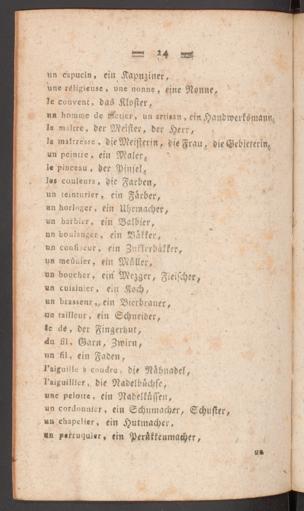 14
un capucin, ein Kapuziner,
une réligieuse, une nonne, eine Nonne,
le couvent, das Kloster,
un homme de metier, un artisan, ein Handwerksmann,
le maître, der Meister, der Herr,
la maîtresse, die Meisterin, die Frau, die Gebieterin,
un peintre, ein Maler,
le pinceau, der Pinsel,
les couleurs, die Farben,
un teinturier, ein Färber,
un horloger, ein Uhrmacher,
un barbier, ein Balbier,
un boulanger, ein Bäkker,
un confiseur, ein Zukkerbäkker,
un meûnier, ein Müller,
un boucher, ein Mezger, Fleischer,
un cuisinier, ein Koch,
un brasseur, ein Bierbrauer,
un tailleur, ein Schneider,
le dé, der Fingerhut,
du fil, Garn, Zwirn,
un fil, ein Faden,
l'aiguille à coudre, die Nähnadel,
l'aiguillier, die Nadelbüchse,
une pelotte, ein Nadelküssen,
un cordonnier, ein Schumacher, Schuster,
un chapelier, ein Hutmacher,
un perruquier, ein Perükkenmacher,